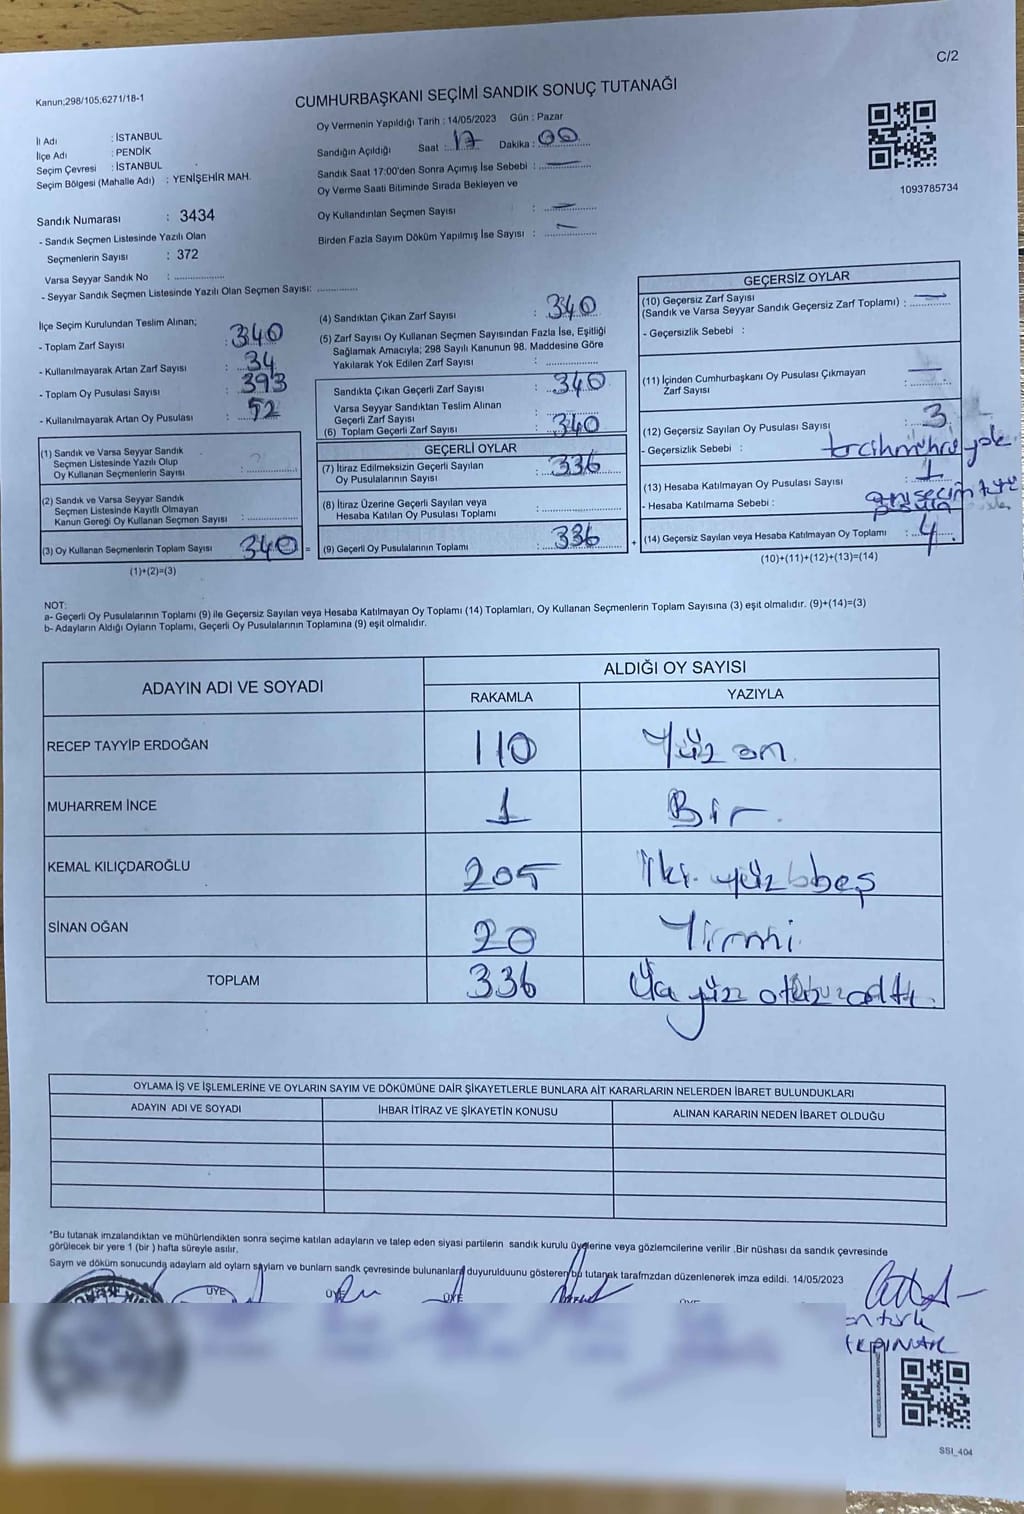 C/2
Kanun;298/105;6271/18-1
CUMHURBAŞKANI SEÇİMİ SANDIK SONUÇ TUTANAĞI
İl Adı : İSTANBUL
İlçe Adı : PENDİK
Seçim Çevresi : İSTANBUL
Seçim Bölgesi (Mahalle Adı) : YENİŞEHİR MAH.
Oy Vermenin Yapıldığı Tarih : 14/05/2023 Gün : Pazar
Sandığın Açıldığı Saat : 17 Dakika : 00
Sandık Saat 17:00'den Sonra Açımış İse Sebebi : —
Oy Verme Saati Bitiminde Sırada Bekleyen ve
Oy Kullandırılan Seçmen Sayısı : —
Birden Fazla Sayım Döküm Yapılmış İse Sayısı : —
1093785734
Sandık Numarası : 3434
- Sandık Seçmen Listesinde Yazılı Olan
Seçmenlerin Sayısı : 372
Varsa Seyyar Sandık No : ....................
- Seyyar Sandık Seçmen Listesinde Yazılı Olan Seçmen Sayısı: ................
İlçe Seçim Kurulundan Teslim Alınan;
- Toplam Zarf Sayısı : 340
- Kullanılmayarak Artan Zarf Sayısı : 34
- Toplam Oy Pusulası Sayısı : 393
- Kullanılmayarak Artan Oy Pusulası : 52
(1) Sandık ve Varsa Seyyar Sandık
Seçmen Listesinde Yazılı Olup
Oy Kullanan Seçmenlerin Sayısı :
(2) Sandık ve Varsa Seyyar Sandık
Seçmen Listesinde Kayıtlı Olmayan
Kanun Gereği Oy Kullanan Seçmen Sayısı :
(3) Oy Kullanan Seçmenlerin Toplam Sayısı 340 =
(1)+(2)=(3)
(4) Sandıktan Çıkan Zarf Sayısı : 340
(5) Zarf Sayısı Oy Kullanan Seçmen Sayısından Fazla İse, Eşitliği
Sağlamak Amacıyla; 298 Sayılı Kanunun 98. Maddesine Göre
Yakılarak Yok Edilen Zarf Sayısı :
Sandıkta Çıkan Geçerli Zarf Sayısı : 340
Varsa Seyyar Sandıktan Teslim Alınan
Geçerli Zarf Sayısı :
(6) Toplam Geçerli Zarf Sayısı : 340
GEÇERLİ OYLAR
(7) İtiraz Edilmeksizin Geçerli Sayılan
Oy Pusulalarının Sayısı : 336
(8) İtiraz Üzerine Geçerli Sayılan veya
Hesaba Katılan Oy Pusulası Toplamı :
(9) Geçerli Oy Pusulalarının Toplamı : 336 +
GEÇERSİZ OYLAR
(10) Geçersiz Zarf Sayısı
(Sandık ve Varsa Seyyar Sandık Geçersiz Zarf Toplamı) : —
- Geçersizlik Sebebi :
(11) İçinden Cumhurbaşkanı Oy Pusulası Çıkmayan
Zarf Sayısı : —
(12) Geçersiz Sayılan Oy Pusulası Sayısı : 3
- Geçersizlik Sebebi : tercih mührü yok
(13) Hesaba Katılmayan Oy Pusulası Sayısı : 1
- Hesaba Katılmama Sebebi :
(14) Geçersiz Sayılan veya Hesaba Katılmayan Oy Toplamı : 4
(10)+(11)+(12)+(13)=(14)
NOT:
a- Geçerli Oy Pusulalarının Toplamı (9) ile Geçersiz Sayılan veya Hesaba Katılmayan Oy Toplamı (14) Toplamları, Oy Kullanan Seçmenlerin Toplam Sayısına (3) eşit olmalıdır. (9)+(14)=(3)
b- Adayların Aldığı Oyların Toplamı, Geçerli Oy Pusulalarının Toplamına (9) eşit olmalıdır.
ADAYIN ADI VE SOYADI ALDIĞI OY SAYISI
RAKAMLA YAZIYLA
RECEP TAYYİP ERDOĞAN 110 Yüz on.
MUHARREM İNCE 1 Bir.
KEMAL KILIÇDAROĞLU 205 İki yüz beş
SİNAN OĞAN 20 Yirmi
TOPLAM 336 Üç yüz otuz altı.
OYLAMA İŞ VE İŞLEMLERİNE VE OYLARIN SAYIM VE DÖKÜMÜNE DAİR ŞİKAYETLERLE BUNLARA AİT KARARLARIN NELERDEN İBARET BULUNDUKLARI
ADAYIN ADI VE SOYADI İHBAR İTİRAZ VE ŞİKAYETİN KONUSU ALINAN KARARIN NEDEN İBARET OLDUĞU
*Bu tutanak imzalandıktan ve mühürlendikten sonra seçime katılan adayların ve talep eden siyasi partilerin sandık kurulu üyelerine veya gözlemcilerine verilir .Bir nüshası da sandık çevresinde
görülecek bir yere 1 (bir ) hafta süreyle asılır.
Sayım ve döküm sonucunda adayların ald oyların sayların ve bunların sandk çevresinde bulunanlara duyurulduunu gösteren bu tutanak tarafmzdan düzenlenerek imza edildi. 14/05/2023
ÜYE ÜYE ÜYE
SSI_404